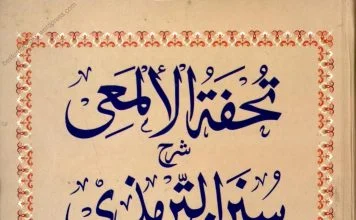 تحفة الألمعی
شرح
سنن الترمذی